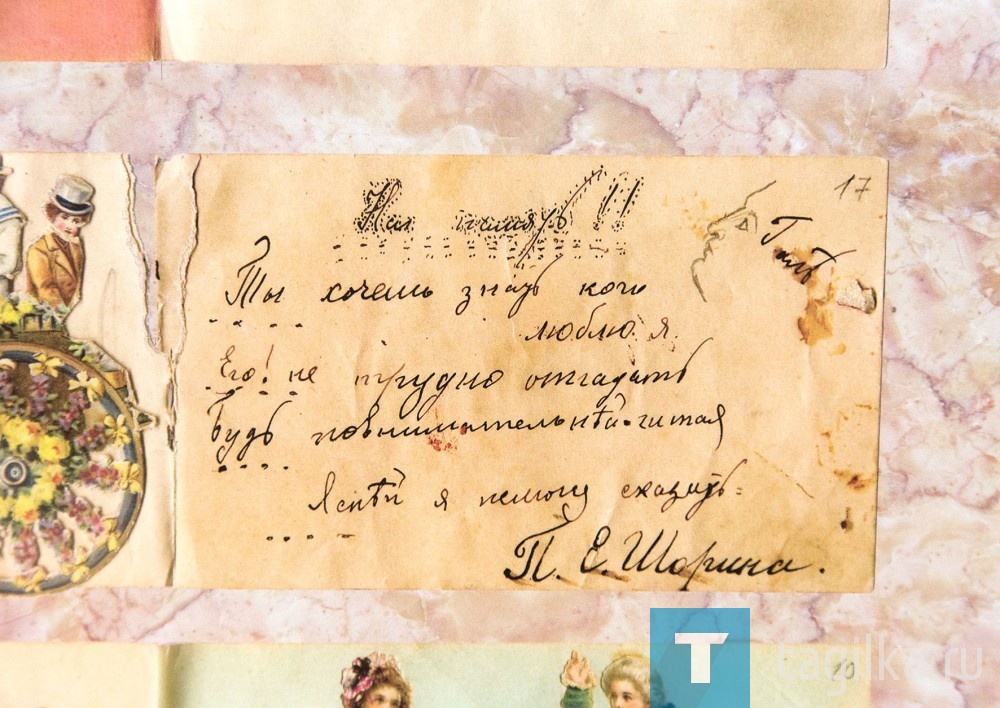 17
На память!!
Ты хочешь знать кого
люблю я.
Его! не трудно отгадать
Будь повнимательнѣй читая
Яснѣй я немогу сказать.
П. Е. Шорина.
tagilka.ru